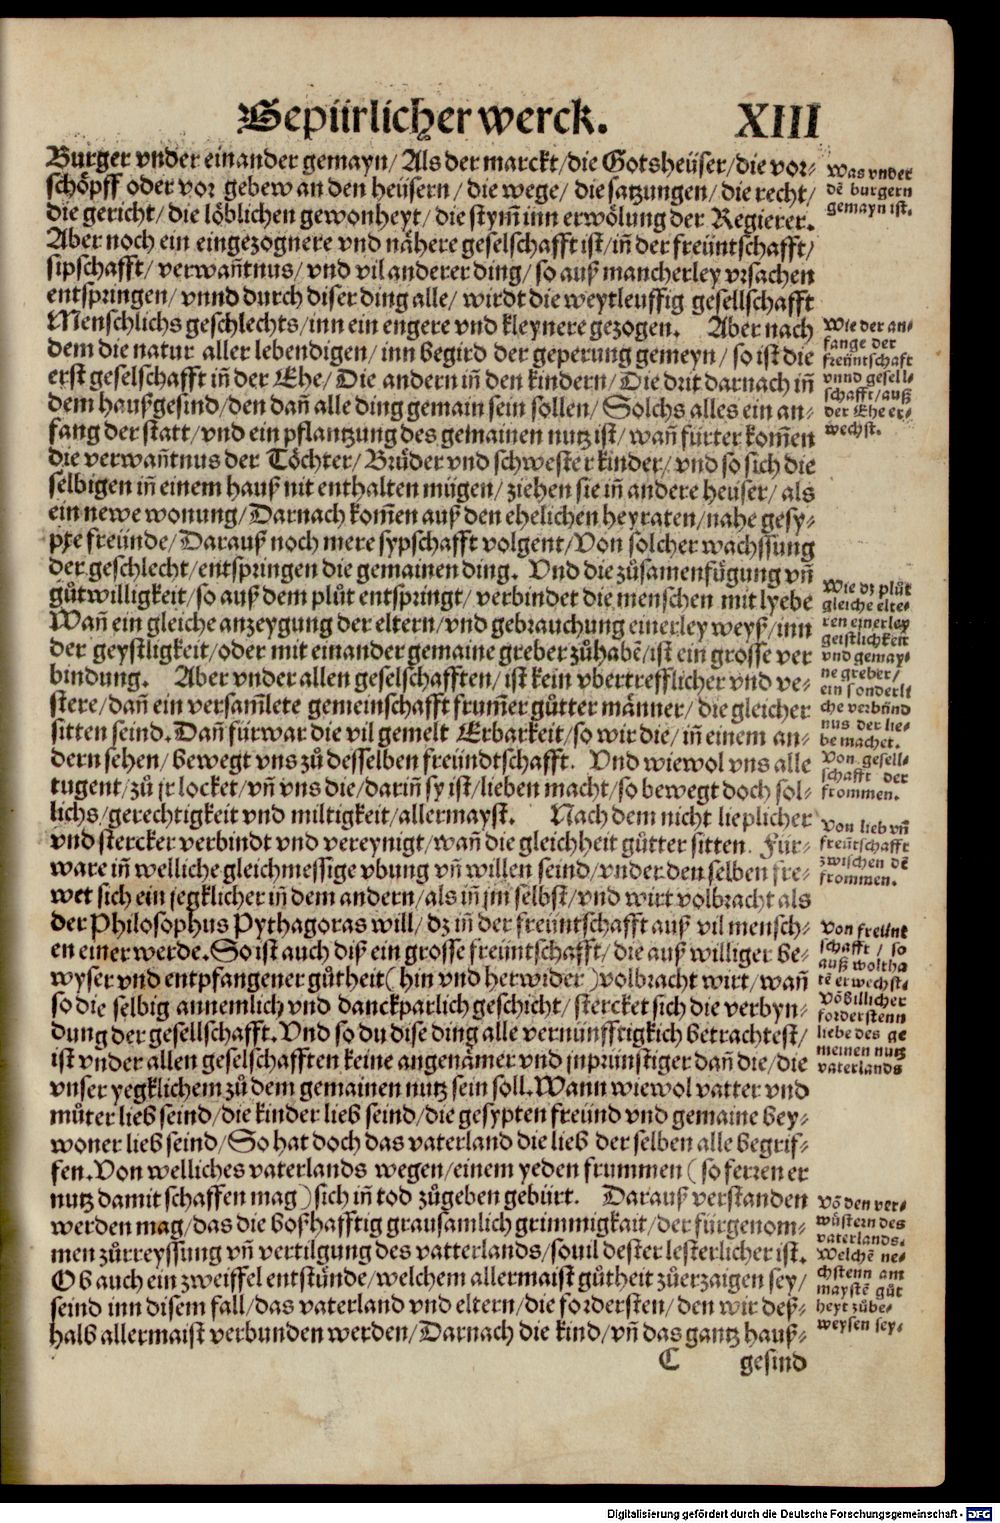 Gepürlicher werck. XIII
Burger vnder einander gemayn/ Als der marckt/die Gotsheüser/die vor⸗
schöpff oder vor gebew an den heüsern/ die wege/ die satzungen/ die recht/
die gericht/ die löblichen gewonheyt/ die stym̄ inn erwölung der Regierer.
Aber noch ein eingezognere vnd nähere geselschafft ist/ in̄ der freüntschafft/
sipschafft/ verwan̄tnus/ vnd vil anderer ding/ so auß mancherley vrsachen
entspringen/ vnnd durch diser ding alle/ wirdt die weytleuffig gesellschafft
Menschlichs geschlechts/ inn ein engere vnd kleynere gezogen. Aber nach
dem die natur aller lebendigen/ inn begird der geperung gemeyn/ so ist die
erst geselschafft in̄ der Ehe/ Die andern in̄ den kindern/ Die drit darnach in̄
dem haußgesind/den dan̄ alle ding gemain sein sollen/ Solchs alles ein an⸗
fang der statt/ vnd ein pflantzung des gemainen nutz ist/ wan̄ fürter kom̄en
die verwan̄tnus der Töchter/ Brüder vnd schwester kinder/ vnd so sich die
selbigen in̄ einem hauß nit enthalten mügen/ ziehen sie in̄ andere heüser/ als
ein newe wonung/ Darnach kom̄en auß den ehelichen heyraten/ nahe gesy⸗
pte freünde/ Darauß noch mere sypschafft volgent/ Von solcher wachssung
der geschlecht/ entspringen die gemainen ding. Vnd die zůsamenfügung vn̄
gůtwilligkeit/ so auß dem plůt entspringt/ verbindet die menschen mit lyebe
Wan̄ ein gleiche anzeygung der eltern/ vnd gebrauchung einerley weyß/ inn
der geystligkeit/ oder mit einander gemaine greber zůhabē/ ist ein grosse ver
bindung. Aber vnder allen geselschafften/ ist kein vbertrefflicher vnd ve⸗
stere/ dan̄ ein versam̄lete gemeinschafft frum̄er gůtter männer/ die gleicher
sitten seind. Dan̄ fürwar die vil gemelt Erbarkeit/ so wir die/ in̄ einem an⸗
dern sehen/ bewegt vns zů desselben freündtschafft. Vnd wiewol vns alle
tugent/ zů jr locket/ vn̄ vns die/ darin̄ sy ist/ lieben macht/ so bewegt doch sol⸗
lichs/ gerechtigkeit vnd miltigkeit/ allermayst. Nach dem nicht lieplicher
vnd stercker verbindt vnd vereynigt/ wan̄ die gleichheit gůtter sitten. Für⸗
ware in̄ welliche gleichmessige vbung vn̄ willen seind/ vnder den selben fre⸗
wet sich ein jegklicher in̄ dem andern/ als in̄ jm selbst/ vnd wirt volbracht als
der Philosophus Pythagoras will/ dz in̄ der freüntschafft auß vil mensch⸗
en einer werde. So ist auch diß ein grosse freüntschafft/ die auß williger be⸗
wyser vnd entpfangener gůtheit (hin vnd herwider) volbracht wirt/ wan̄
so die selbig annemlich vnd danckparlich geschicht/ stercket sich die verbyn⸗
dung der gesellschafft. Vnd so du dise ding alle vernünfftigkich betrachtest/
ist vnder allen geselschafften keine angenämer vnd jnprünstiger dan̄ die/ die
vnser yegklichem zů dem gemainen nutz sein soll. Wann wiewol vatter vnd
můter lieb seind/ die kinder lieb seind/ die gesypten freünd vnd gemaine bey⸗
woner lieb seind/ So hat doch das vaterland die lieb der selben alle begrif⸗
fen. Von welliches vaterlands wegen/ einem yeden frummen (so ferren er
nutz damit schaffen mag) sich in̄ tod zůgeben gebürt. Darauß verstanden
werden mag/ das die boßhafftig grausamlich grimmigkait/ der fürgenom⸗
men zůrreyssung vn̄ vertilgung des vatterlands/ souil dester lesterlicher ist.
Ob auch ein zweiffel entstünde/ welchem allermaist gůtheit zůerzaigen sey/
seind inn disem fall/ das vaterland vnd eltern/ die fordersten/ den wir deß⸗
halb allermaist verbunden werden/ Darnach die kind/ vn̄ das gantz hauß⸗
C gesind
Was vnder
dē burgern
gemayn ist.
Wie der an⸗
fange der
freüntschaft
vnnd gesell⸗
schafft/ auß
der Ehe er⸗
wechst.
Wie dz plůt
gleiche elte⸗
ren einerley
geistlichkeit
vnd gemay⸗
ne greber/
ein sonderli
che verbünd
nus der lie⸗
be machet.
Von gesell⸗
schafft der
frommen.
Von lieb vn̄
freüntschafft
zwischen dē
frommen.
Von freünt
schafft/ so
auß woltha
tē erwechst.
Vō billicher
forderstenn
liebe des ge
meinen nutz
vaterlands
Vō den ver⸗
wüstern des
vaterlands.
Welchē ne⸗
chstenn am
maystē gůt
heyt zůbe⸗
weysen sey.
Digitalisierung gefördert durch die Deutsche Forschungsgemeinschaft - DFG